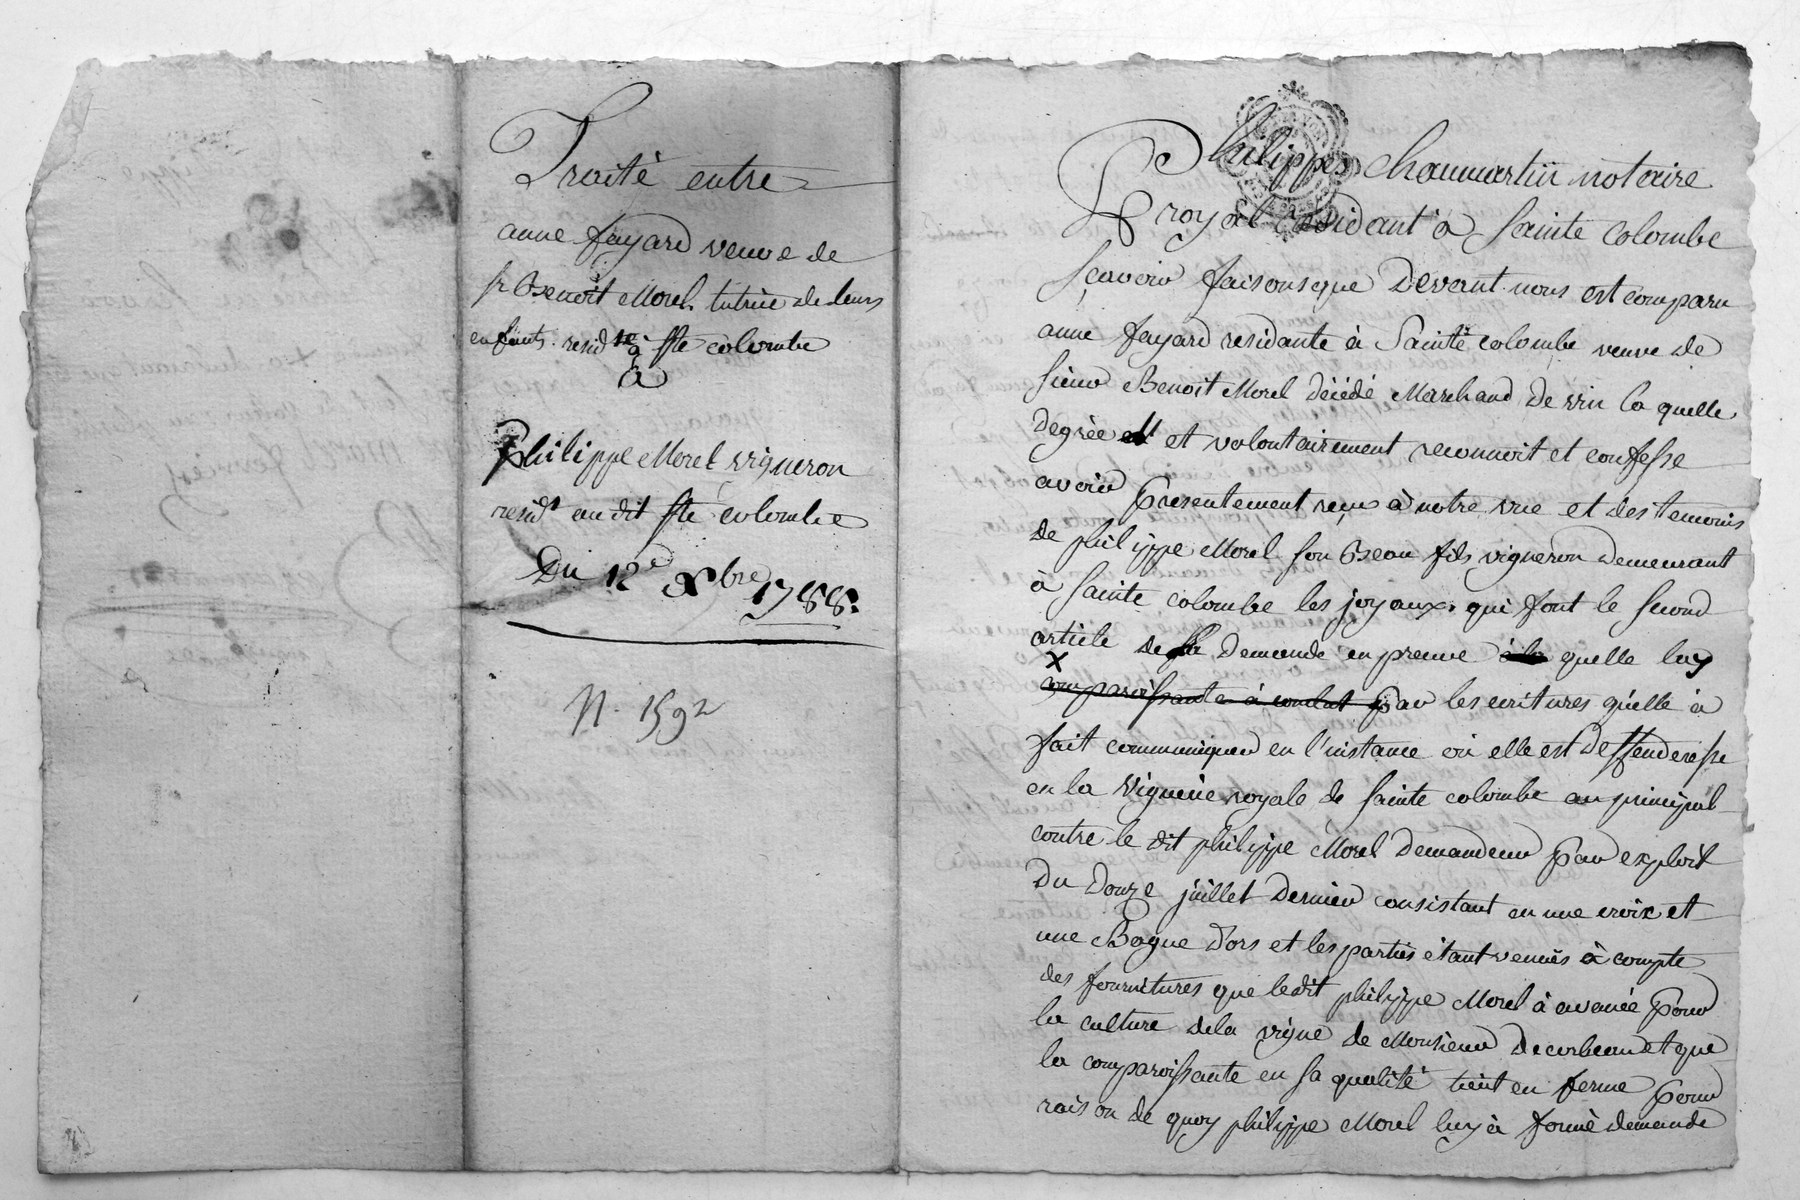 Traité entre
anne fayard veuve de
sr Benoit Morel tutrice de leurs
enfants residte à Ste colombe
&
Philippe Morel vigneron
residt audit Ste colombe
Du 12e Xbre 1788.
N. 1592
Philippes Chaumartin notaire
royal residant à Sainte colombe
sçavoir faisons que Devant nous est comparu
anne fayard residante à Sainte colombe veuve de
sieur Benoit Morel décédé Marchand De vin la quelle
degrée et volontairement reconnoit et confesse
avoir presentement reçu à notre vue et des temoins
de philippe Morel son Beau fils vigneron demeurant
à Sainte colombe les joyaux qui font le second
article de sa Demande en preuve quelle luy
x
comparoissante à conclut par les ecritures qu'elle à
fait communiquer en l'instance où elle est Deffenderesse
en la viguerie royale de Sainte colombe au principal
contre le dit philippe Morel Demandeur par exploit
Du Douze juillet Dernier consistant en une croix et
une Bague d'ors et les parties étant venuës à compte
des fournitures que ledit philippe Morel à avancé pour
la culture dela vigne de Monsieur Decorbeau et que
la comparoissante en sa qualité tient en ferme pour
raison de quoy philippe Morel luy à formé demande